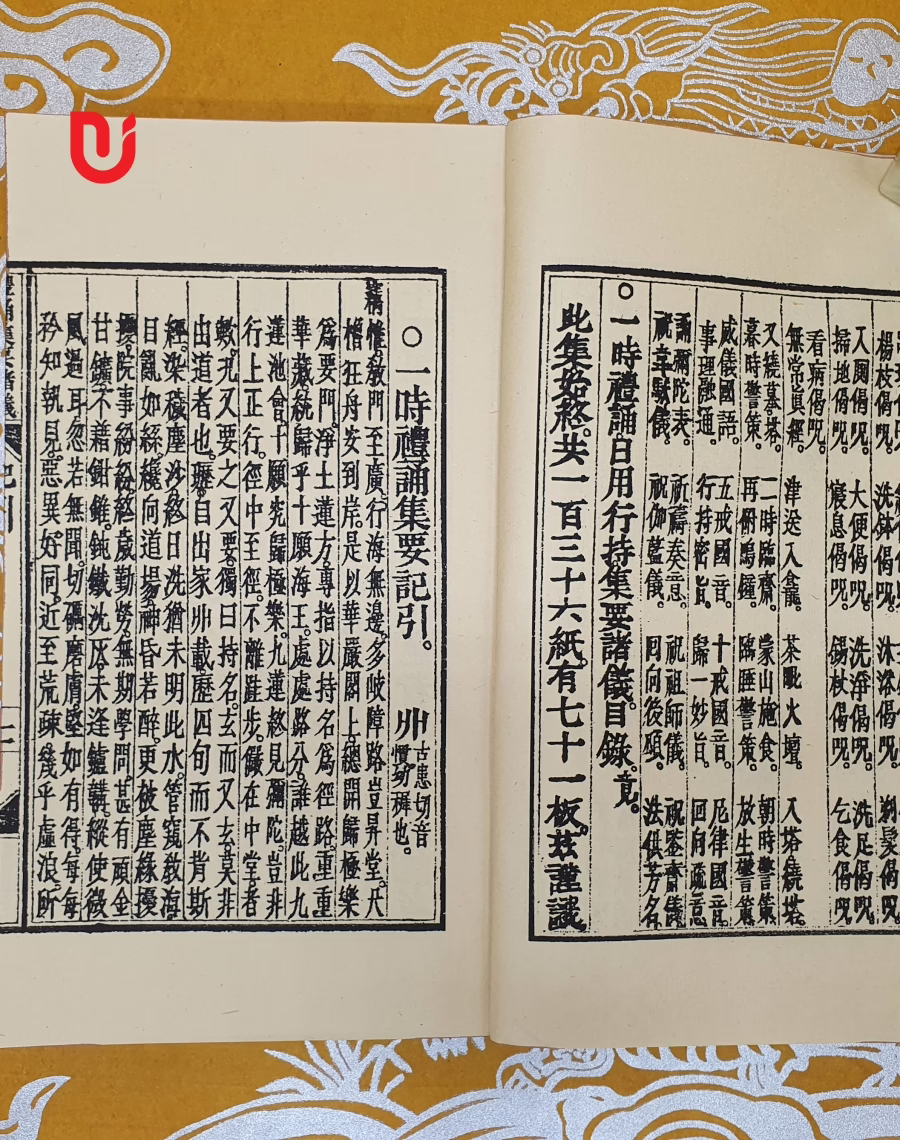 楊枝偈咒。洗鉢偈咒。沐浴偈咒。剃髮偈咒。
入厠偈咒。大便偈咒。洗淨偈咒。洗足偈咒。
掃地偈咒。寢息偈咒。錫杖偈咒。乞食偈咒。
看病偈咒。
無常真經。津送入龕。茶毗火壇。入塔繞塔。
又繞墓塔。二時臨齋。蒙山施食。朝時警策。
暮時警策。再俯鳴鐘。臨睡警策。放生警策。
威儀國語。五戒國音。十戒國音。尼律國音。
事理融通。行持密旨。歸一妙旨。回向疏意。
誦彌陀表。祈禱奏意。祝祖師儀。祝監齋儀。
祝韋馱儀。祝伽藍儀。回向後願。法供芳名。
○一時禮誦日用行持集要諸儀。目錄。竟。
此集始終。共一百三十六紙。有七十一板。茲謹識。
○一時禮誦集要記引。丱古患切音慣幼穉也。
竊惟教門至廣。行海無邊。多岐障路豈昇堂。尺
檣狂舟安到岸。是以華嚴閣上。總開歸極樂
為要門。淨土蓮方。專指以持名為徑路。重重
華藏統歸乎十願海王。處處路分。誰越此九
蓮池會。十願究歸極樂。九蓮終見彌陀。豈非
行上正行。徑中至徑。不離跬步。儼在中堂者
歟。況又要之又要。獨曰持名。玄而又玄。莫非
出道者也。瓑自出家丱載。歷四旬而不肯斯
經。染穢塵沙。終日洗猶未明此水。管窺教海
目亂如絲。纔向道場。神昏若醉。更被塵緣擾
攘。院事紛紜。終歲勤勞。無期學問。甚有頭金
甘鑛。不藉鉗錐。鈍鐵洗灰。未逢鑪韛。縱使微
風過耳。忽若無聞。切磋磨膚。堅如有得。每每
矜知執見。惡異好同。近至荒疎。幾乎虛浪。所